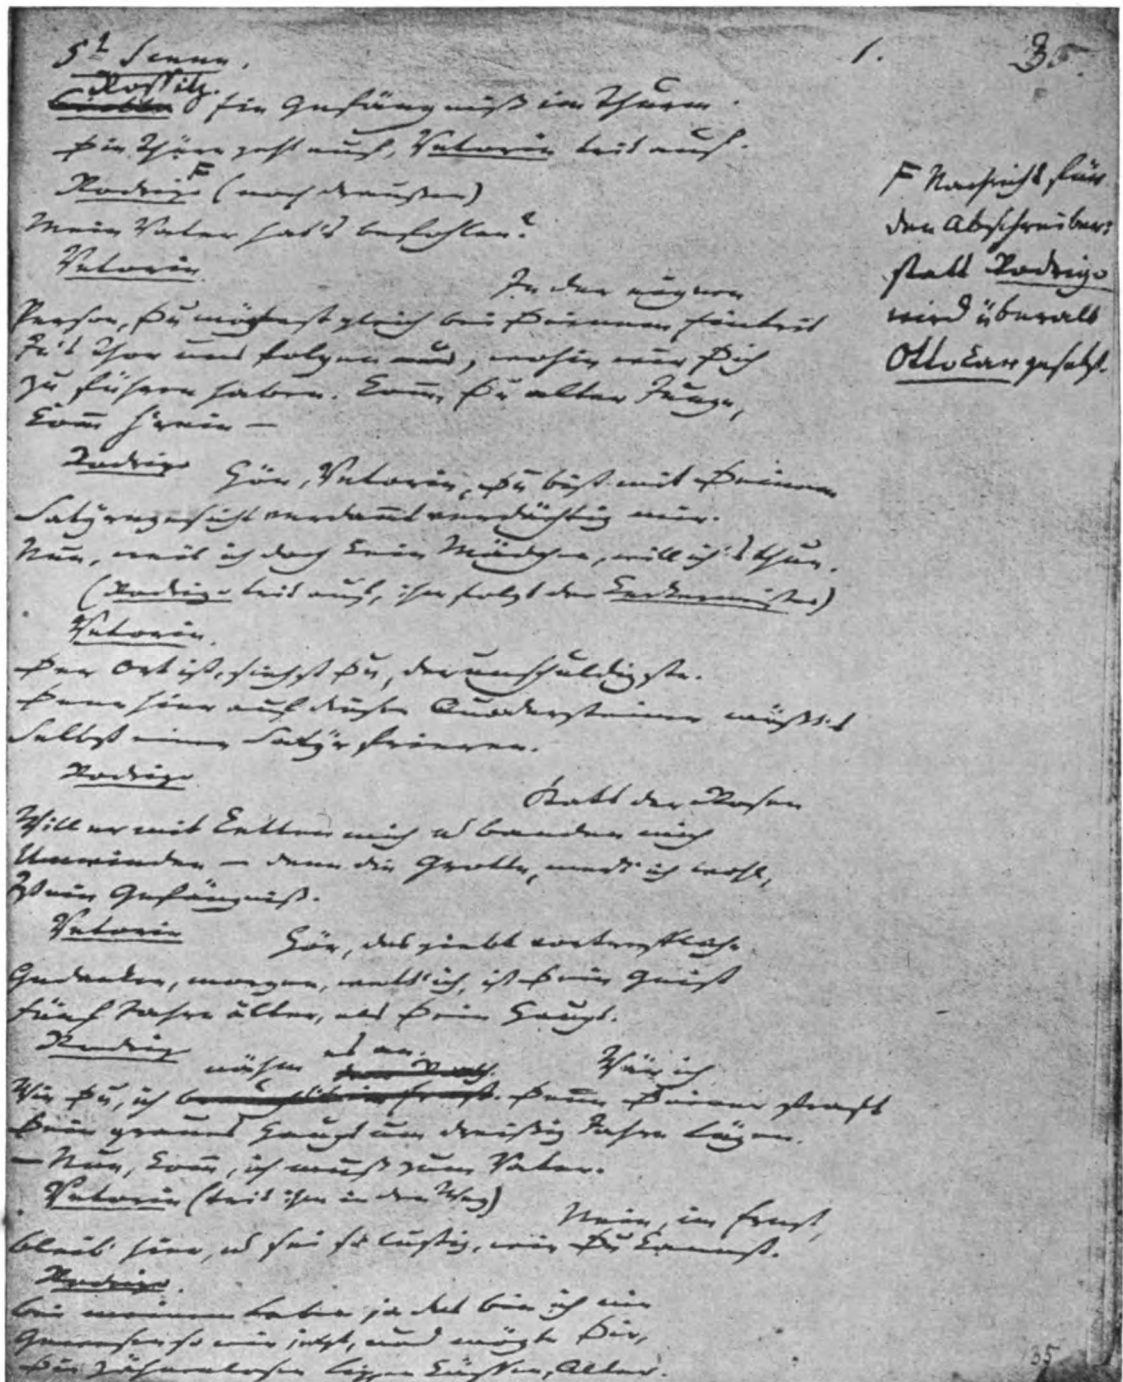 5<sup>t</sup> Scene.
1.
35.
Rossitz.
Ein Gefängniß im Thurm.
Die Thüre geht auf, Vetorin trit auf.
Rodrigo F (noch draußen)
Mein Vater hat's befohlen?
Vetorin
In der eignen
Person, Du mögtest gleich bei Deinem Eintrit
In's Thor uns folgen nur, wohin wir Dich
Zu führen haben. Kom̄, Du alter Junge,
Kom̄ h'rein —
Rodrigo Hör, Vetorin, Du bist mit Deinem
Satyrngesicht verdam̄t verdächtig mir.
Nun, weil ich doch kein Mädchen, will ich's thun.
(Rodrigo trit auf, ihm folgt der Kerkermeister)
Vetorin.
Der Ort ist, siehst Du, der unschuldigste.
Denn hier auf diesen Quadersteinen müßt's
Selbst einen Satyr frieren.
Rodrigo
Statt der Rosen
Will er mit Ketten mich u banden mich
Umwinden — denn die Grotte, merk' ich wohl,
Ist ein Gefängniß.
Vetorin Hör, das giebt vortreffliche
Gedanken, morgen, wett' ich, ist Dein Geist
Fünf Jahre älter, als Dein Haupt.
Rodrigo
Wär ich
nähm es an.
Wie Du, ich Den̄ Deiner straft
Dein graues Haupt um dreißig Jahre Lügen.
— Nun, kom̄, ich muß zum Vater.
Vetorin (trit ihm in den Weg)
Nein, im Ernst,
Bleib' hier, u sei so lustig, wie Du kannst.
Rodrigo.
Bei meinem Leben ja das bin ich nie
Gewesen so wie jetzt, und mögte Dir,
Die zähnelosen Lippen küssen, Alter.
F Nachricht für
den Abschreiber:
statt Rodrigo
wird überall
Ottokar gesetzt.
35